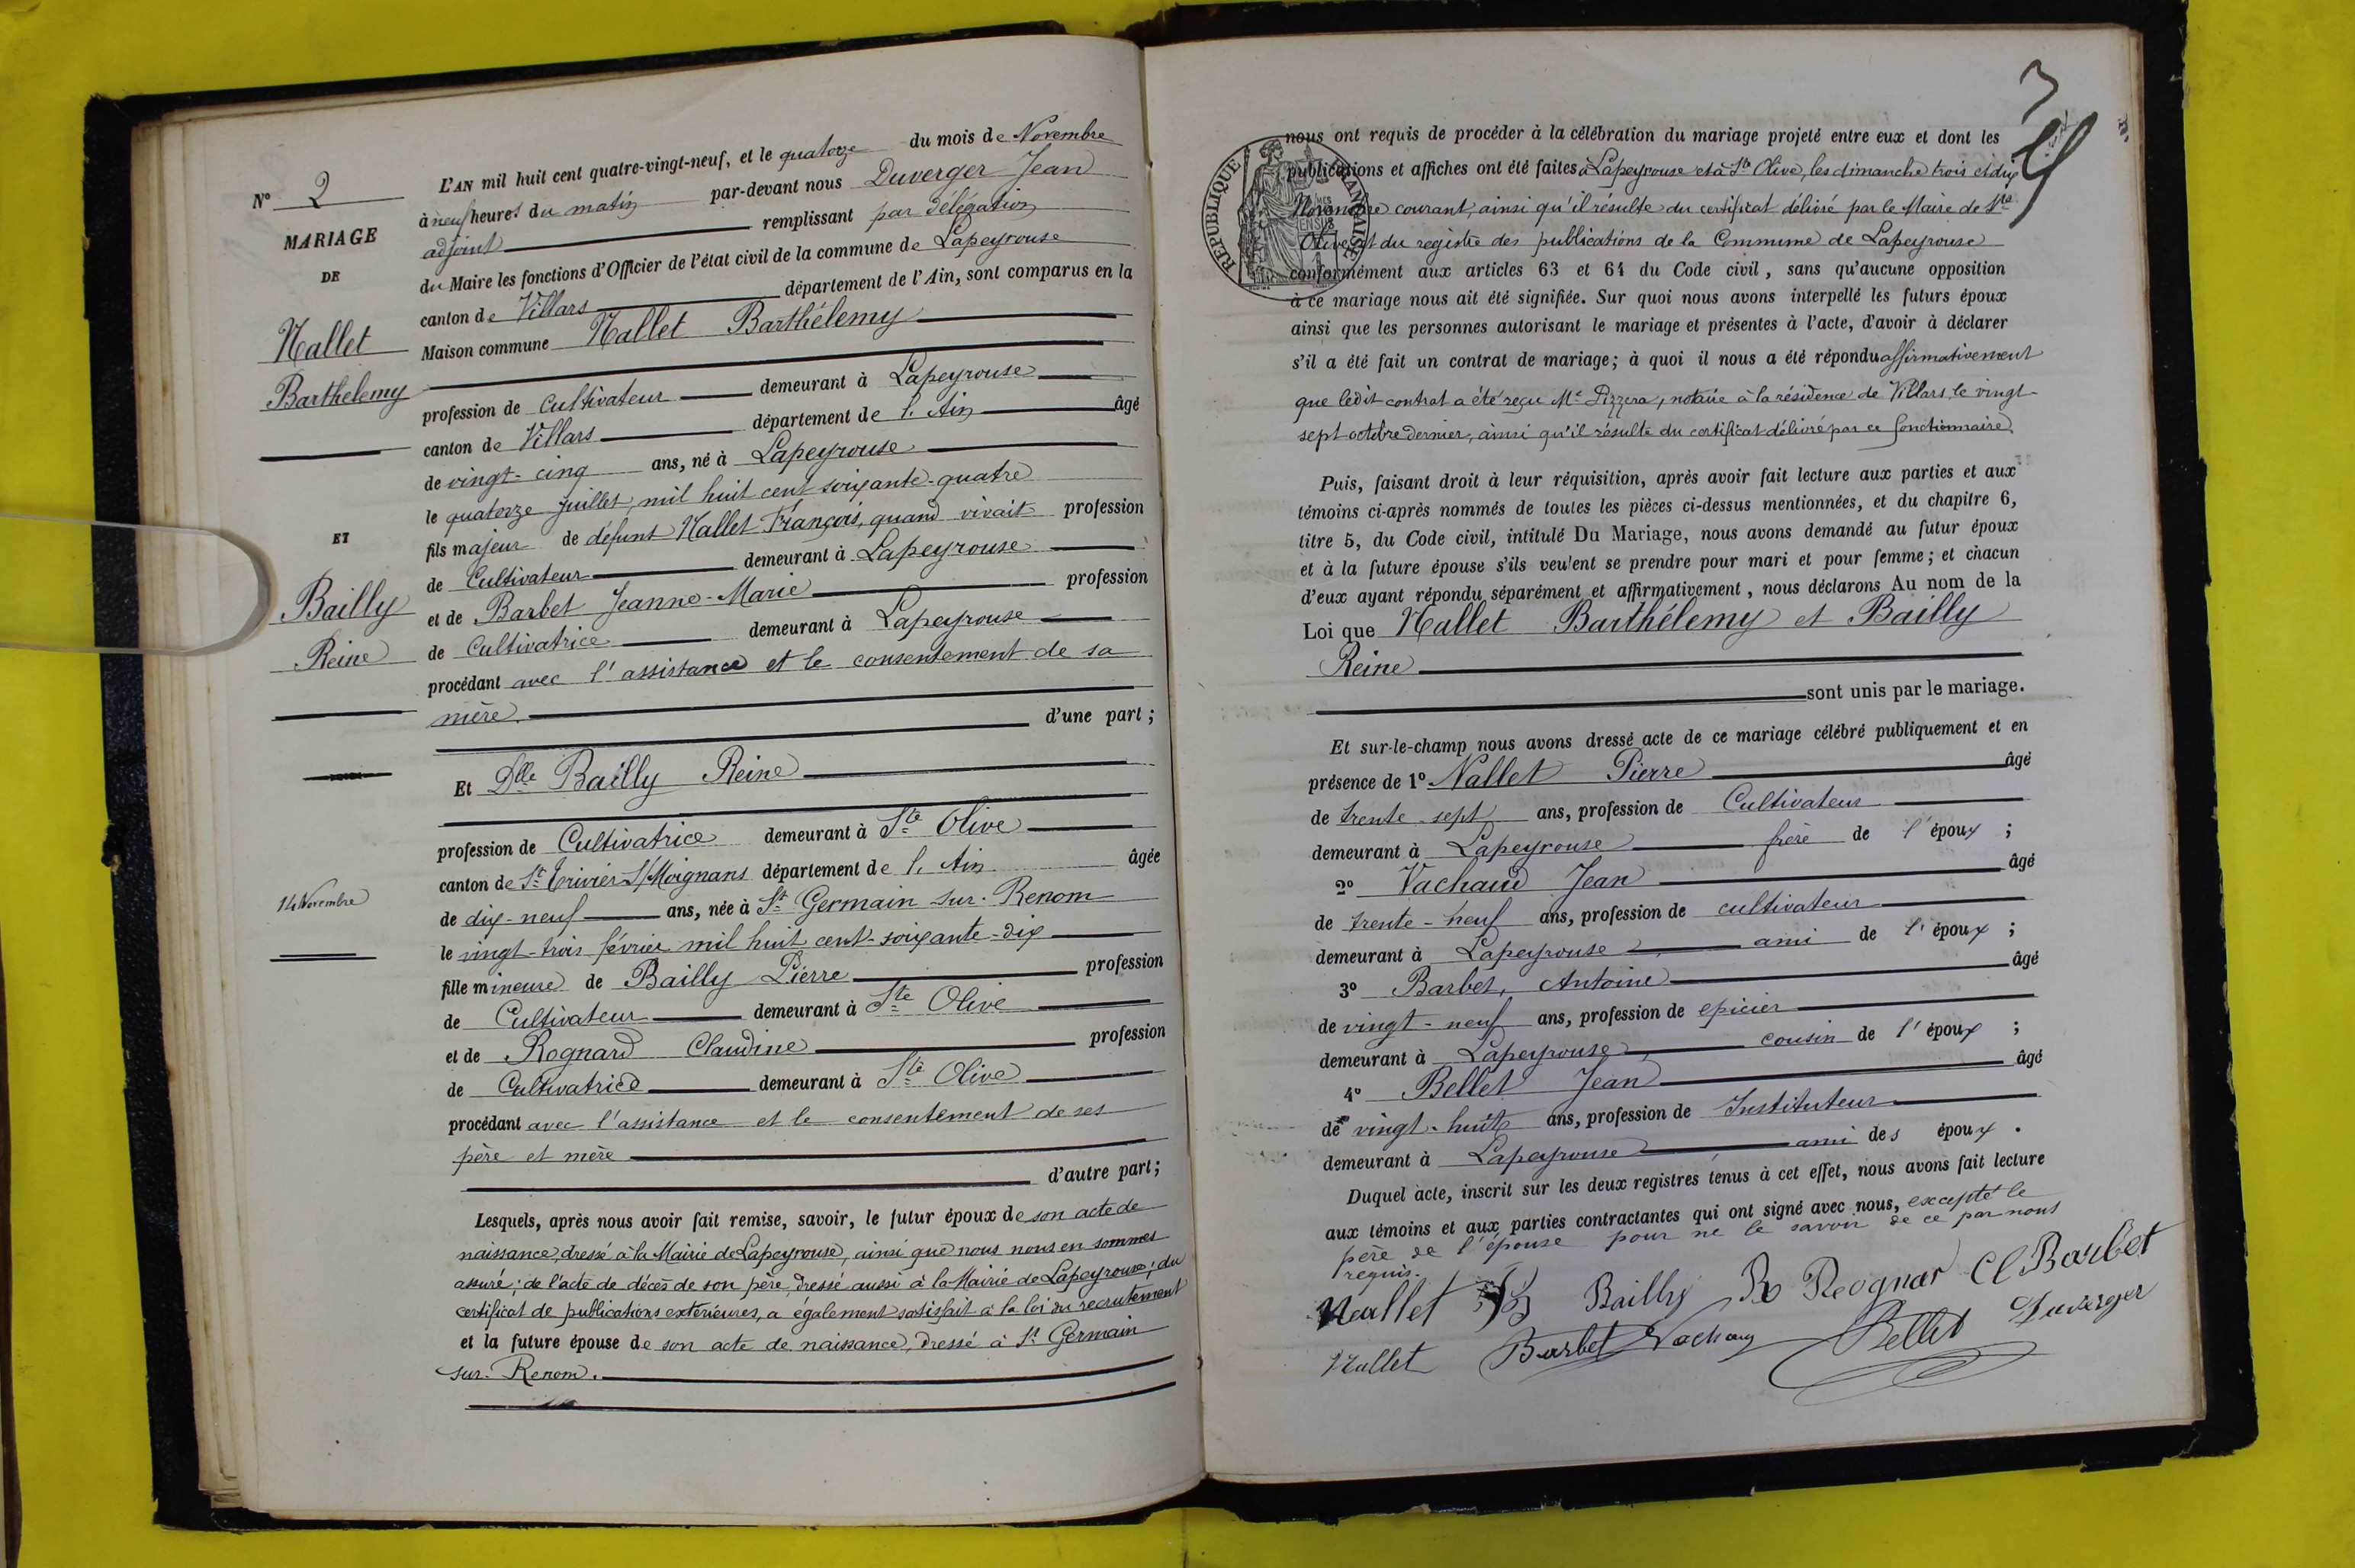 N° 2
MARIAGE
DE
Nallet
Barthelemy
ET
Bailly
Reine
14 Novembre
L'AN mil huit cent quatre-vingt-neuf, et le quatorze du mois de Novembre
à neuf heures du matin par-devant nous Duverger Jean
adjoint remplissant par délégation
du Maire les fonctions d'Officier de l'état civil de la commune de Lapeyrouse
canton de Villars département de l'Ain, sont comparus en la
Maison commune Nallet Barthélemy
profession de Cultivateur demeurant à Lapeyrouse
canton de Villars département de l'Ain âgé
de vingt-cinq ans, né à Lapeyrouse
le quatorze Juillet, mil huit cent soixante-quatre
fils majeur de défunt Nallet François, quand vivait profession
de Cultivateur demeurant à Lapeyrouse
et de Barbet Jeanne-Marie profession
de Cultivatrice demeurant à Lapeyrouse
procédant avec l'assistance et le consentement de sa
mère.
d'une part;
Et Dlle Bailly Reine
profession de Cultivatrice demeurant à Ste Olive
canton de St Trivier S/Moignans département de l'Ain âgée
de dix-neuf ans, née à St Germain sur-Renom
le vingt-trois février mil huit cent-soixante-dix
fille mineure de Bailly Pierre profession
de Cultivateur demeurant à Ste Olive
et de Rognard Claudine profession
de Cultivatrice demeurant à Ste Olive
procédant avec l'assistance et le consentement de ses
père et mère
d'autre part;
Lesquels, après nous avoir fait remise, savoir, le futur époux de son acte de
naissance, dressé à la Mairie de Lapeyrouse, ainsi que nous nous en sommes
assuré; de l'acte de décès de son père, dressé aussi à la Mairie de Lapeyrouse; du
certificat de publications extérieures, a également satisfait à la loi du recrutement
et la future épouse de son acte de naissance, dressé à St Germain
sur-Renom.
3
RÉPUBLIQUE FRANÇAISE
nous ont requis de procéder à la célébration du mariage projeté entre eux et dont les
publications et affiches ont été faites à Lapeyrouse et à Ste Olive, les dimanche trois et dix
Novembre courant, ainsi qu'il résulte du certificat délivré par le Maire de Ste
Olive, et du registre des publications de la Commune de Lapeyrouse
conformément aux articles 63 et 64 du Code civil, sans qu'aucune opposition
à ce mariage nous ait été signifiée. Sur quoi nous avons interpellé les futurs époux
ainsi que les personnes autorisant le mariage et présentes à l'acte, d'avoir à déclarer
s'il a été fait un contrat de mariage; à quoi il nous a été répondu affirmativement
que ledit contrat a été reçu Me Pizzera, notaire à la résidence de Villars, le vingt-
sept octobre dernier, ainsi qu'il résulte du certificat délivré par ce fonctionnaire.
Puis, faisant droit à leur réquisition, après avoir fait lecture aux parties et aux
témoins ci-après nommés de toutes les pièces ci-dessus mentionnées, et du chapitre 6,
titre 5, du Code civil, intitulé Du Mariage, nous avons demandé au futur époux
et à la future épouse s'ils veulent se prendre pour mari et pour femme; et chacun
d'eux ayant répondu séparément et affirmativement, nous déclarons Au nom de la
Loi que Nallet Barthélemy et Bailly
Reine
sont unis par le mariage.
Et sur-le-champ nous avons dressé acte de ce mariage célébré publiquement et en
présence de 1° Nallet Pierre âgé
de trente sept ans, profession de Cultivateur
demeurant à Lapeyrouse frère de l'époux ;
2° Vachaud Jean âgé
de trente-neuf ans, profession de cultivateur
demeurant à Lapeyrouse, ami de l'époux ;
3° Barbet, Antoine âgé
de vingt-neuf ans, profession de epicier
demeurant à Lapeyrouse, cousin de l'époux ;
4° Bellet Jean âgé
de vingt-huit ans, profession de Instituteur
demeurant à Lapeyrouse ami des époux.
Duquel acte, inscrit sur les deux registres tenus à cet effet, nous avons fait lecture
aux témoins et aux parties contractantes qui ont signé avec nous, excepté le
père de l'épouse pour ne le savoir de ce par nous
requis.
Nallet B Bailly R Rognar Cl Barbet
Nallet Barbet Vachaud Bellet Duverger